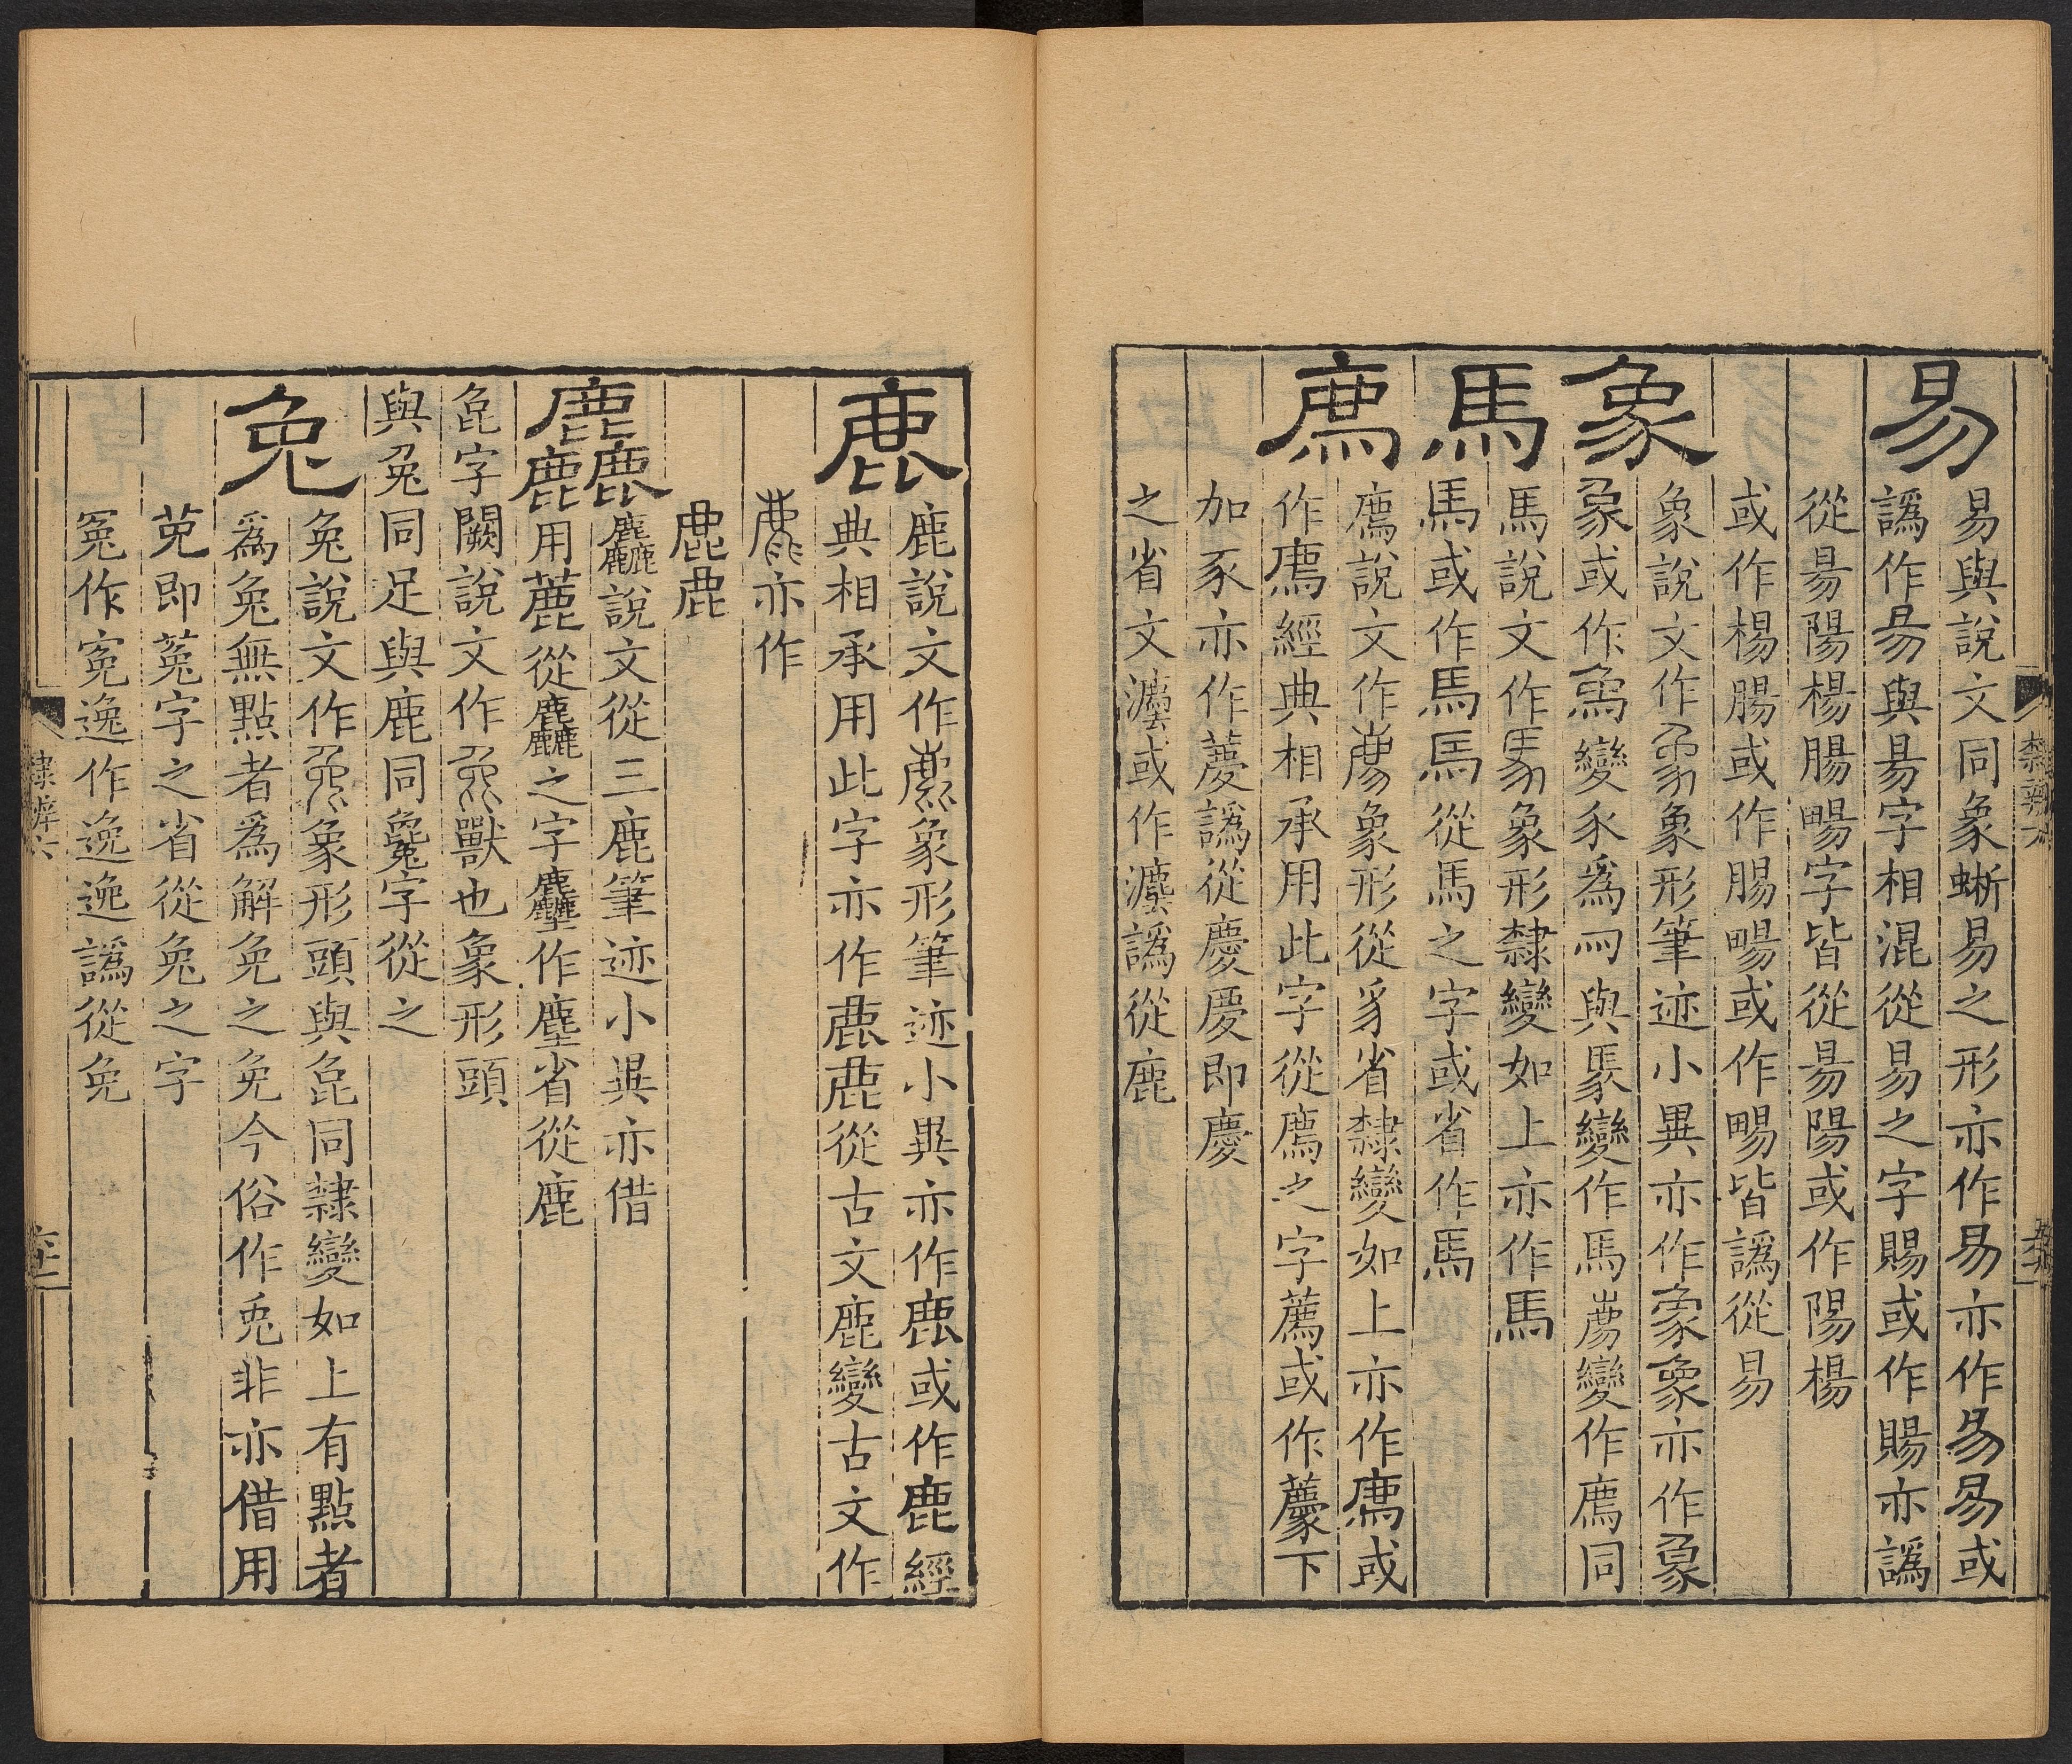 易
易與說文同象蜥易之形亦作易亦作易易或
譌作昜與昜字相混從易之字賜或作賜亦譌
從昜陽楊腸暢字皆從昜陽或作陽楊
或作楊腸或作腸暢或作暢皆譌從易
象
象說文作象象形筆迹小異亦作象象亦作象
象或作象變豕為與爲變作馬廌變作廌同
馬
馬說文作馬象形隸變如上亦作馬
馬或作馬馬從馬之字或省作馬
廌
廌說文作廌象形從豸省隸變如上亦作廌或
作廌經典相承用此字從廌之字薦或作下
加豕亦作譌從慶慶即慶
之省文灋或作灋譌從鹿
隸辨六
鹿
鹿說文作鹿象形筆迹小異亦作鹿或作鹿經
典相承用此字亦作鹿鹿從古文鹿變古文作
亦作
鹿鹿
麤
麤說文從三鹿筆迹小異亦借
用麤從麤之字作塵省從鹿
㲋字闕說文作㲋獸也象形頭
與兔同足與鹿同毚字從之
兔
兔說文作兔象形頭與㲋同隸變如上有點者
爲兔無點者爲解免之免今俗作兎非亦借用
莵即菟字之省從兔之字
冤作寃逸作逸逸譌從免
隸辨六
六十一